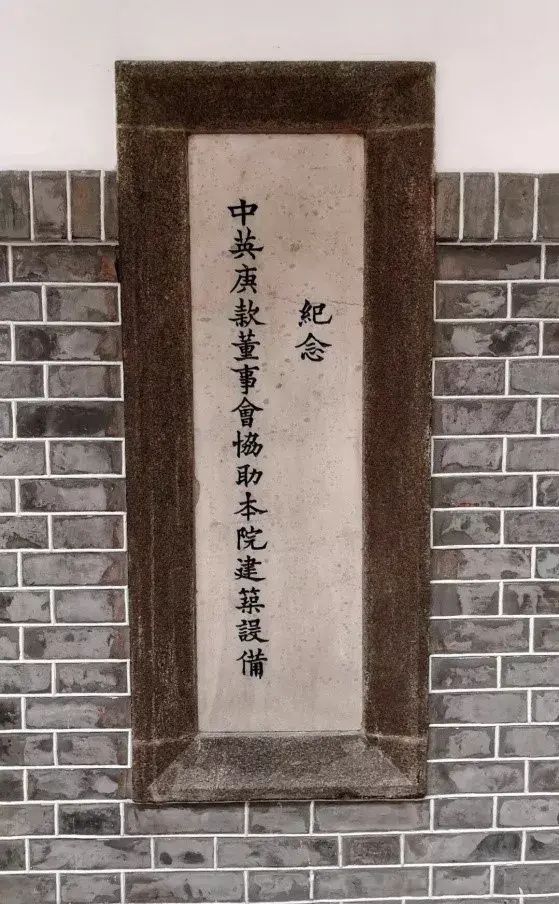 紀念
中英庚款董事會協助本院建築設備